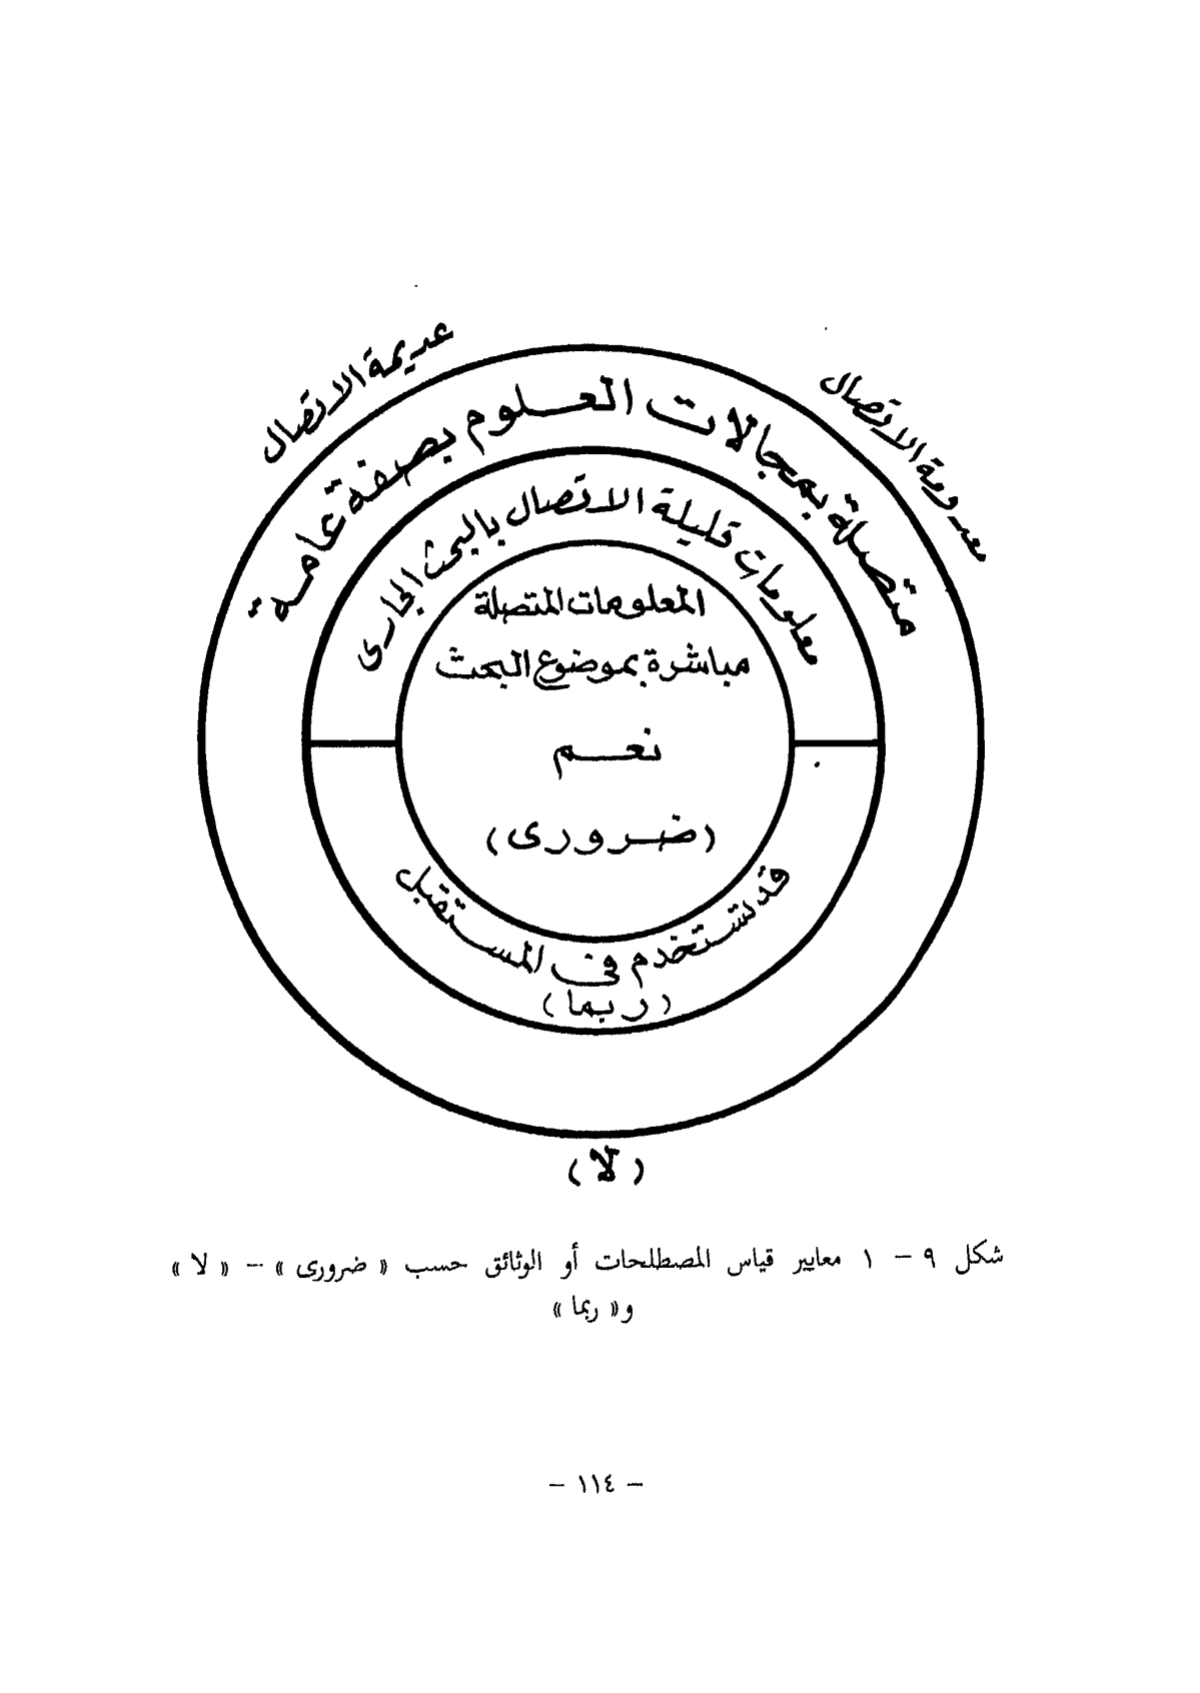 عديمة الاتصال
معدومة الاتصال
متصلة بمجالات العلوم بصفة عامة
معلومات قليلة الاتصال بالبحث الجارى
المعلومات المتصلة
مباشرة بموضوع البحث
نعم
(ضرورى)
قد تستخدم فى المستقبل
(ربما)
(لا)
شكل ٩ – ١ معايير قياس المصطلحات أو الوثائق حسب « ضرورى » – « لا »
و« ربما »
– ١١٤ –